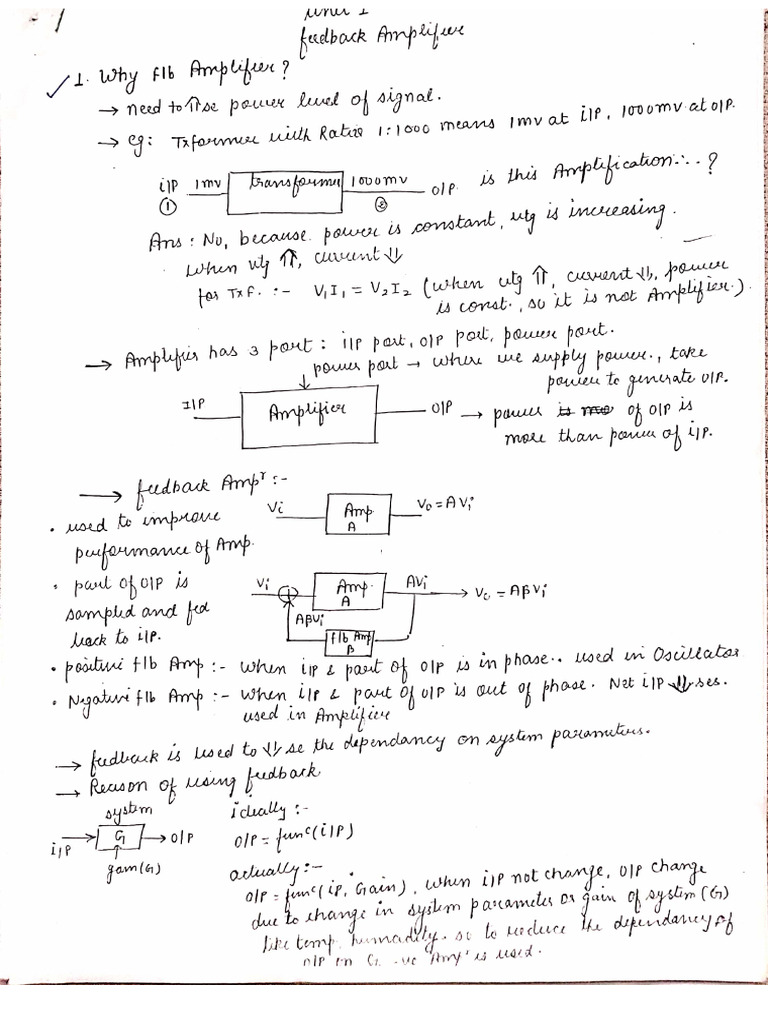 Unit I
feedback Amplifier
1. Why f|b Amplifier?
→ need to ⇑se power level of signal.
→ eg: Txformer with Ratio 1:1000 means 1mv at i|P, 1000mv at O|P.
i|P 1mv transformer 1000mv O|P. is this Amplification...?
① ②
Ans: No, because power is constant, vtg is increasing.
When vtg ⇑, current ⇓
for Txf. :- V1I1 = V2I2 (when vtg ⇑, current ⇓, power
is const., so it is not Amplifier.)
→ Amplifier has 3 part: i|P part, O|P part, power part.
power part → where we supply power., take
power to generate O|P.
I|P Amplifier O|P → power of O|P is
more than power of i|P.
→ feedback Ampr :-
Vi Amp A Vo = AVi
• used to improve
performance of Amp.
• part of O|P is
sampled and fed
back to i|P.
Vi Amp. A AVi Vo = AβVi
AβVi f|b Amp β
• positive f|b Amp :- when i|P & part of O|P is in phase.. used in Oscillator
• Negative f|b Amp :- when i|P & part of O|P is out of phase. Net i|P ⇓ses.
used in Amplifier
→ feedback is used to ⇓se the dependancy on system parameters.
→ Reason of using feedback
system
i|P G O|P
gain(G)
ideally :-
O|P = func(i|P)
actually :-
O|P = func(iP, Gain), when i|P not change, O|P change
due to change in system parameter or gain of system (G)
like temp, humadity. so to reduce the dependancy of
O|P on G -ve Ampr is used.